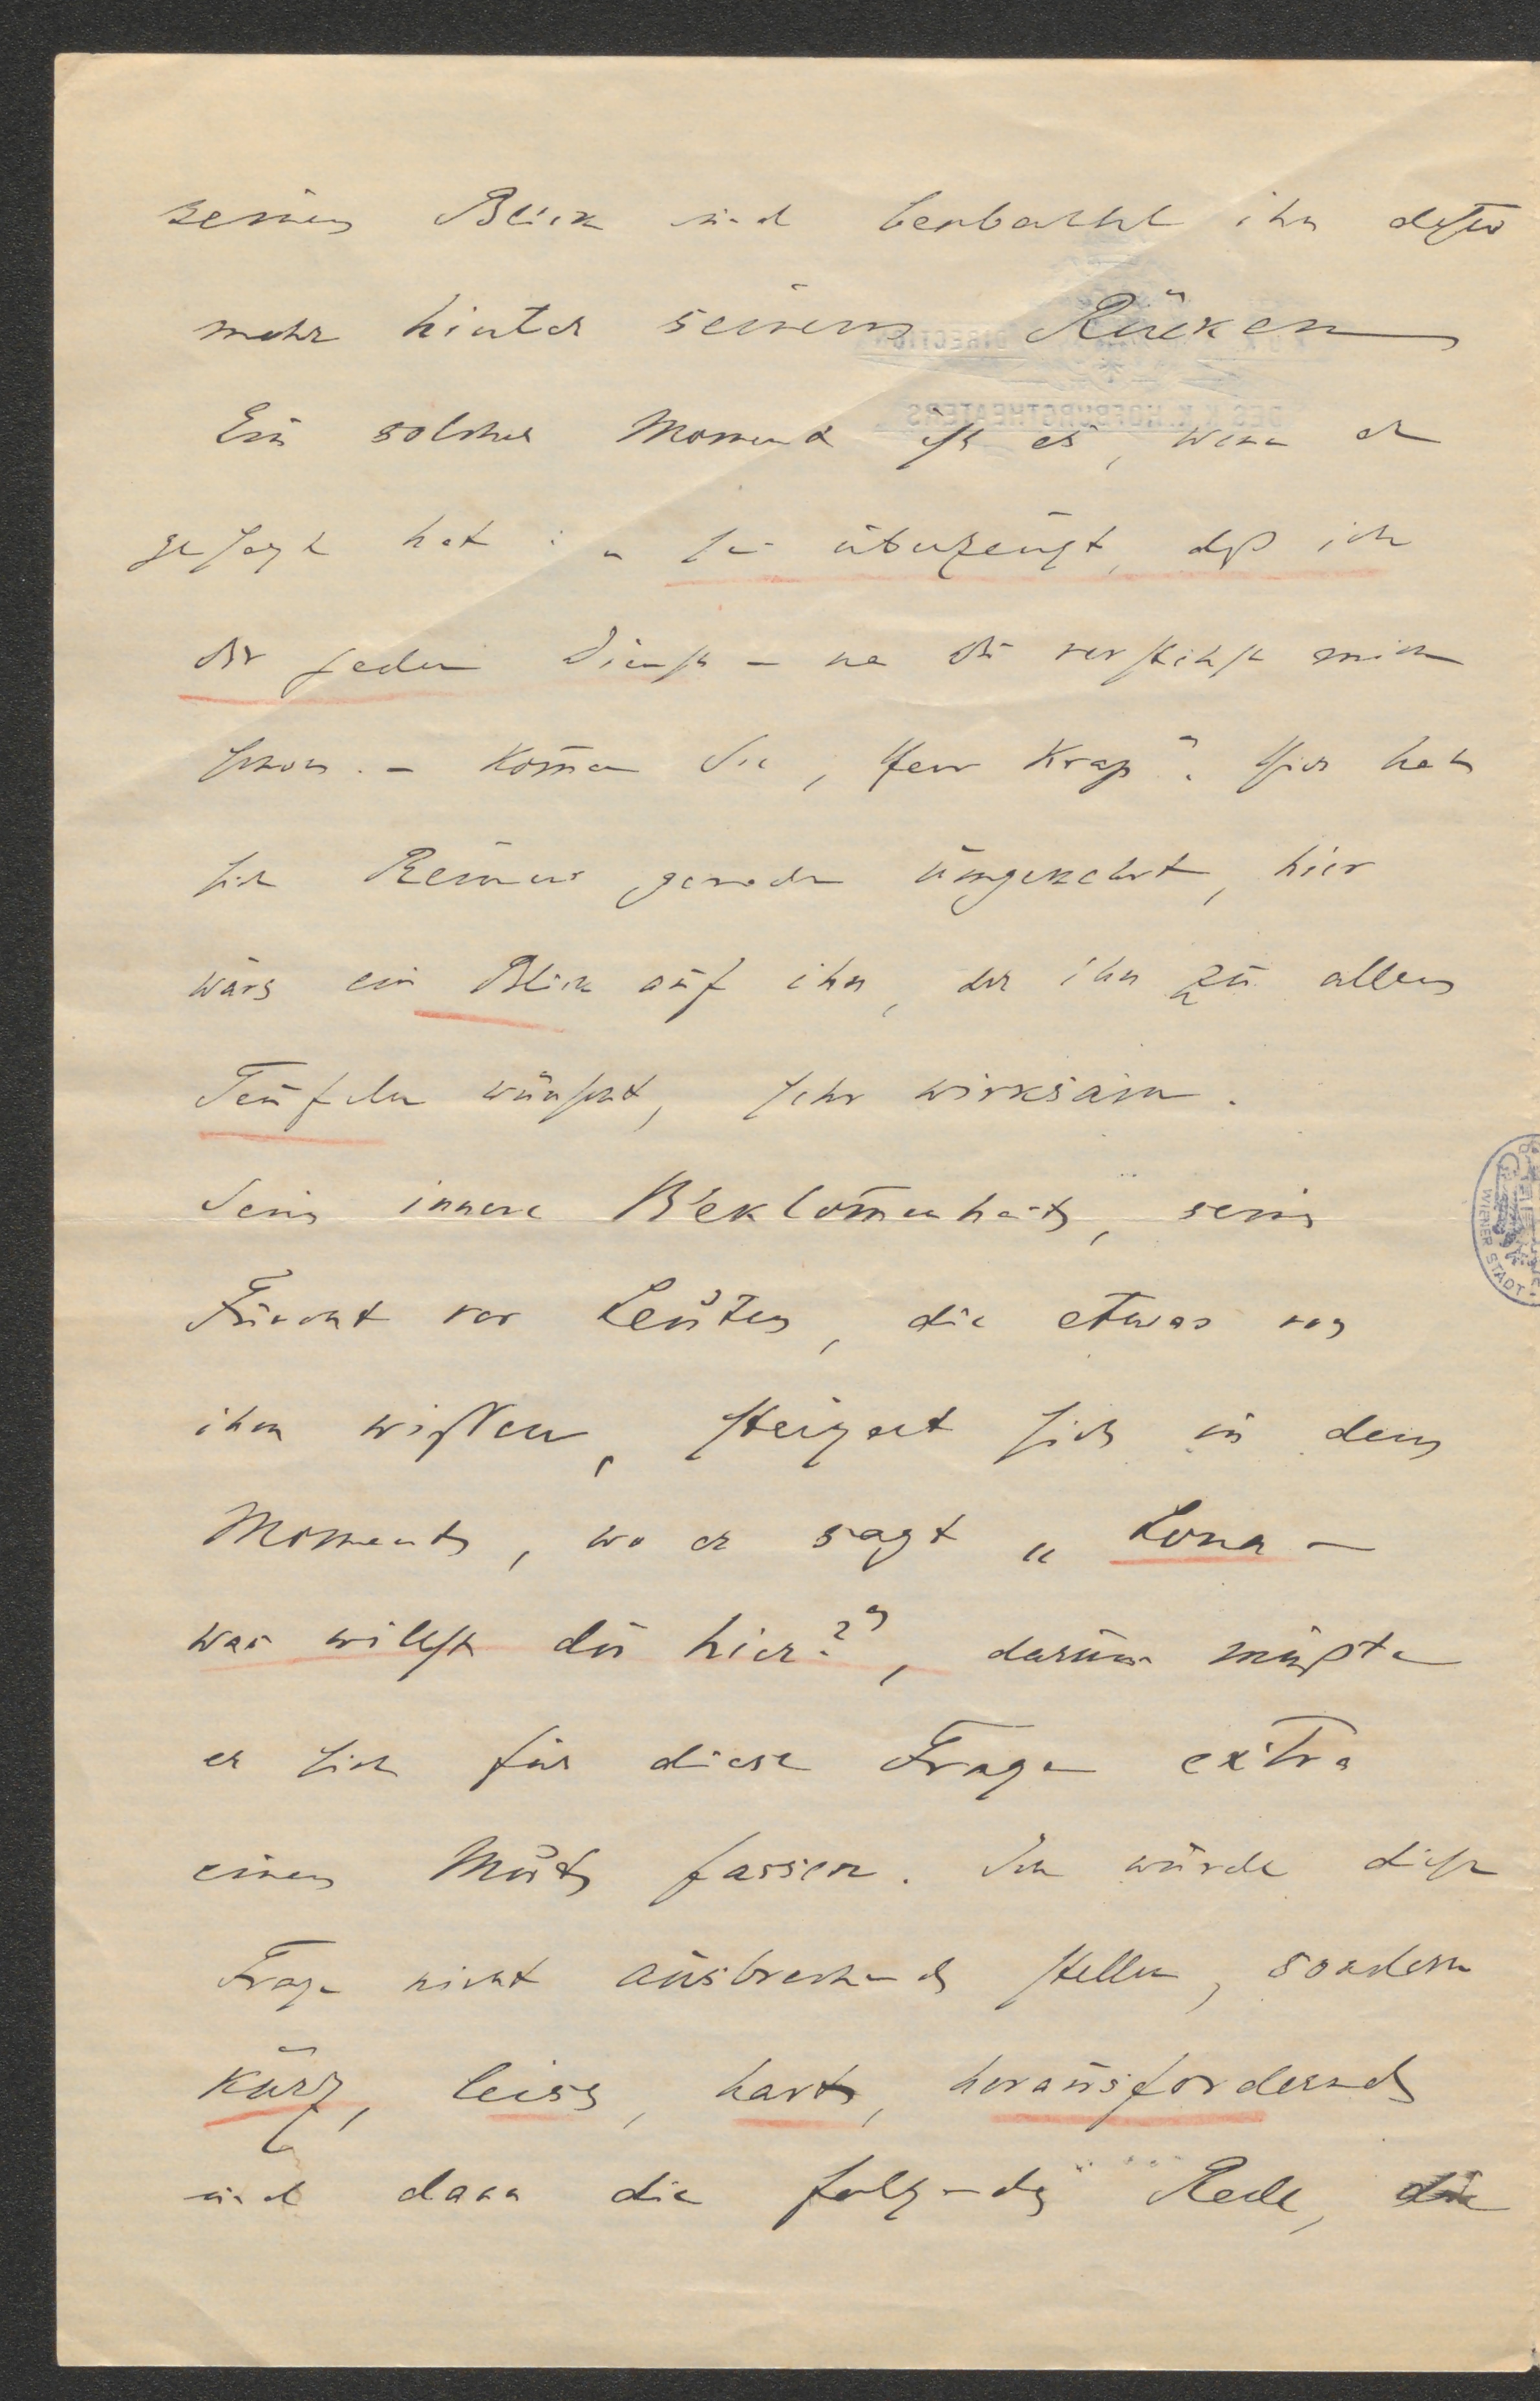 seinen Blick und beobachtet ihn desto
mehr hinter seinem Rücken
Ein solcher Moment ist es, wenn er
gesagt hat: „Sei überzeugt, daß ich
dir jeden Dienst – na du verstehst mich
schon. – Kom̄en Sie, Herr Krap“. Hier hat
sich Reimers gerade umgekehrt, hier
wärs ein Blick auf ihn, der ihn zu allen
Teufeln wünscht, sehr wirksam.
Seine innere Beklom̄enheit, seine
Furcht vor Leuten, die etwas von
ihm wissen, steigert sich in dem
Momente, wo er sagt „Lona –
was willst du hier?“, darum müßte
er sich für diese Frage extra
einen Mut fassen. Ich würde diese
Frage nicht ausbrechend stellen, sondern
kurz, leise, hart, herausfordernd
und dann die folgende Rede, die
DIRECTION
DES K.K. HOFBURGTHEATERS
WIENER STADT-